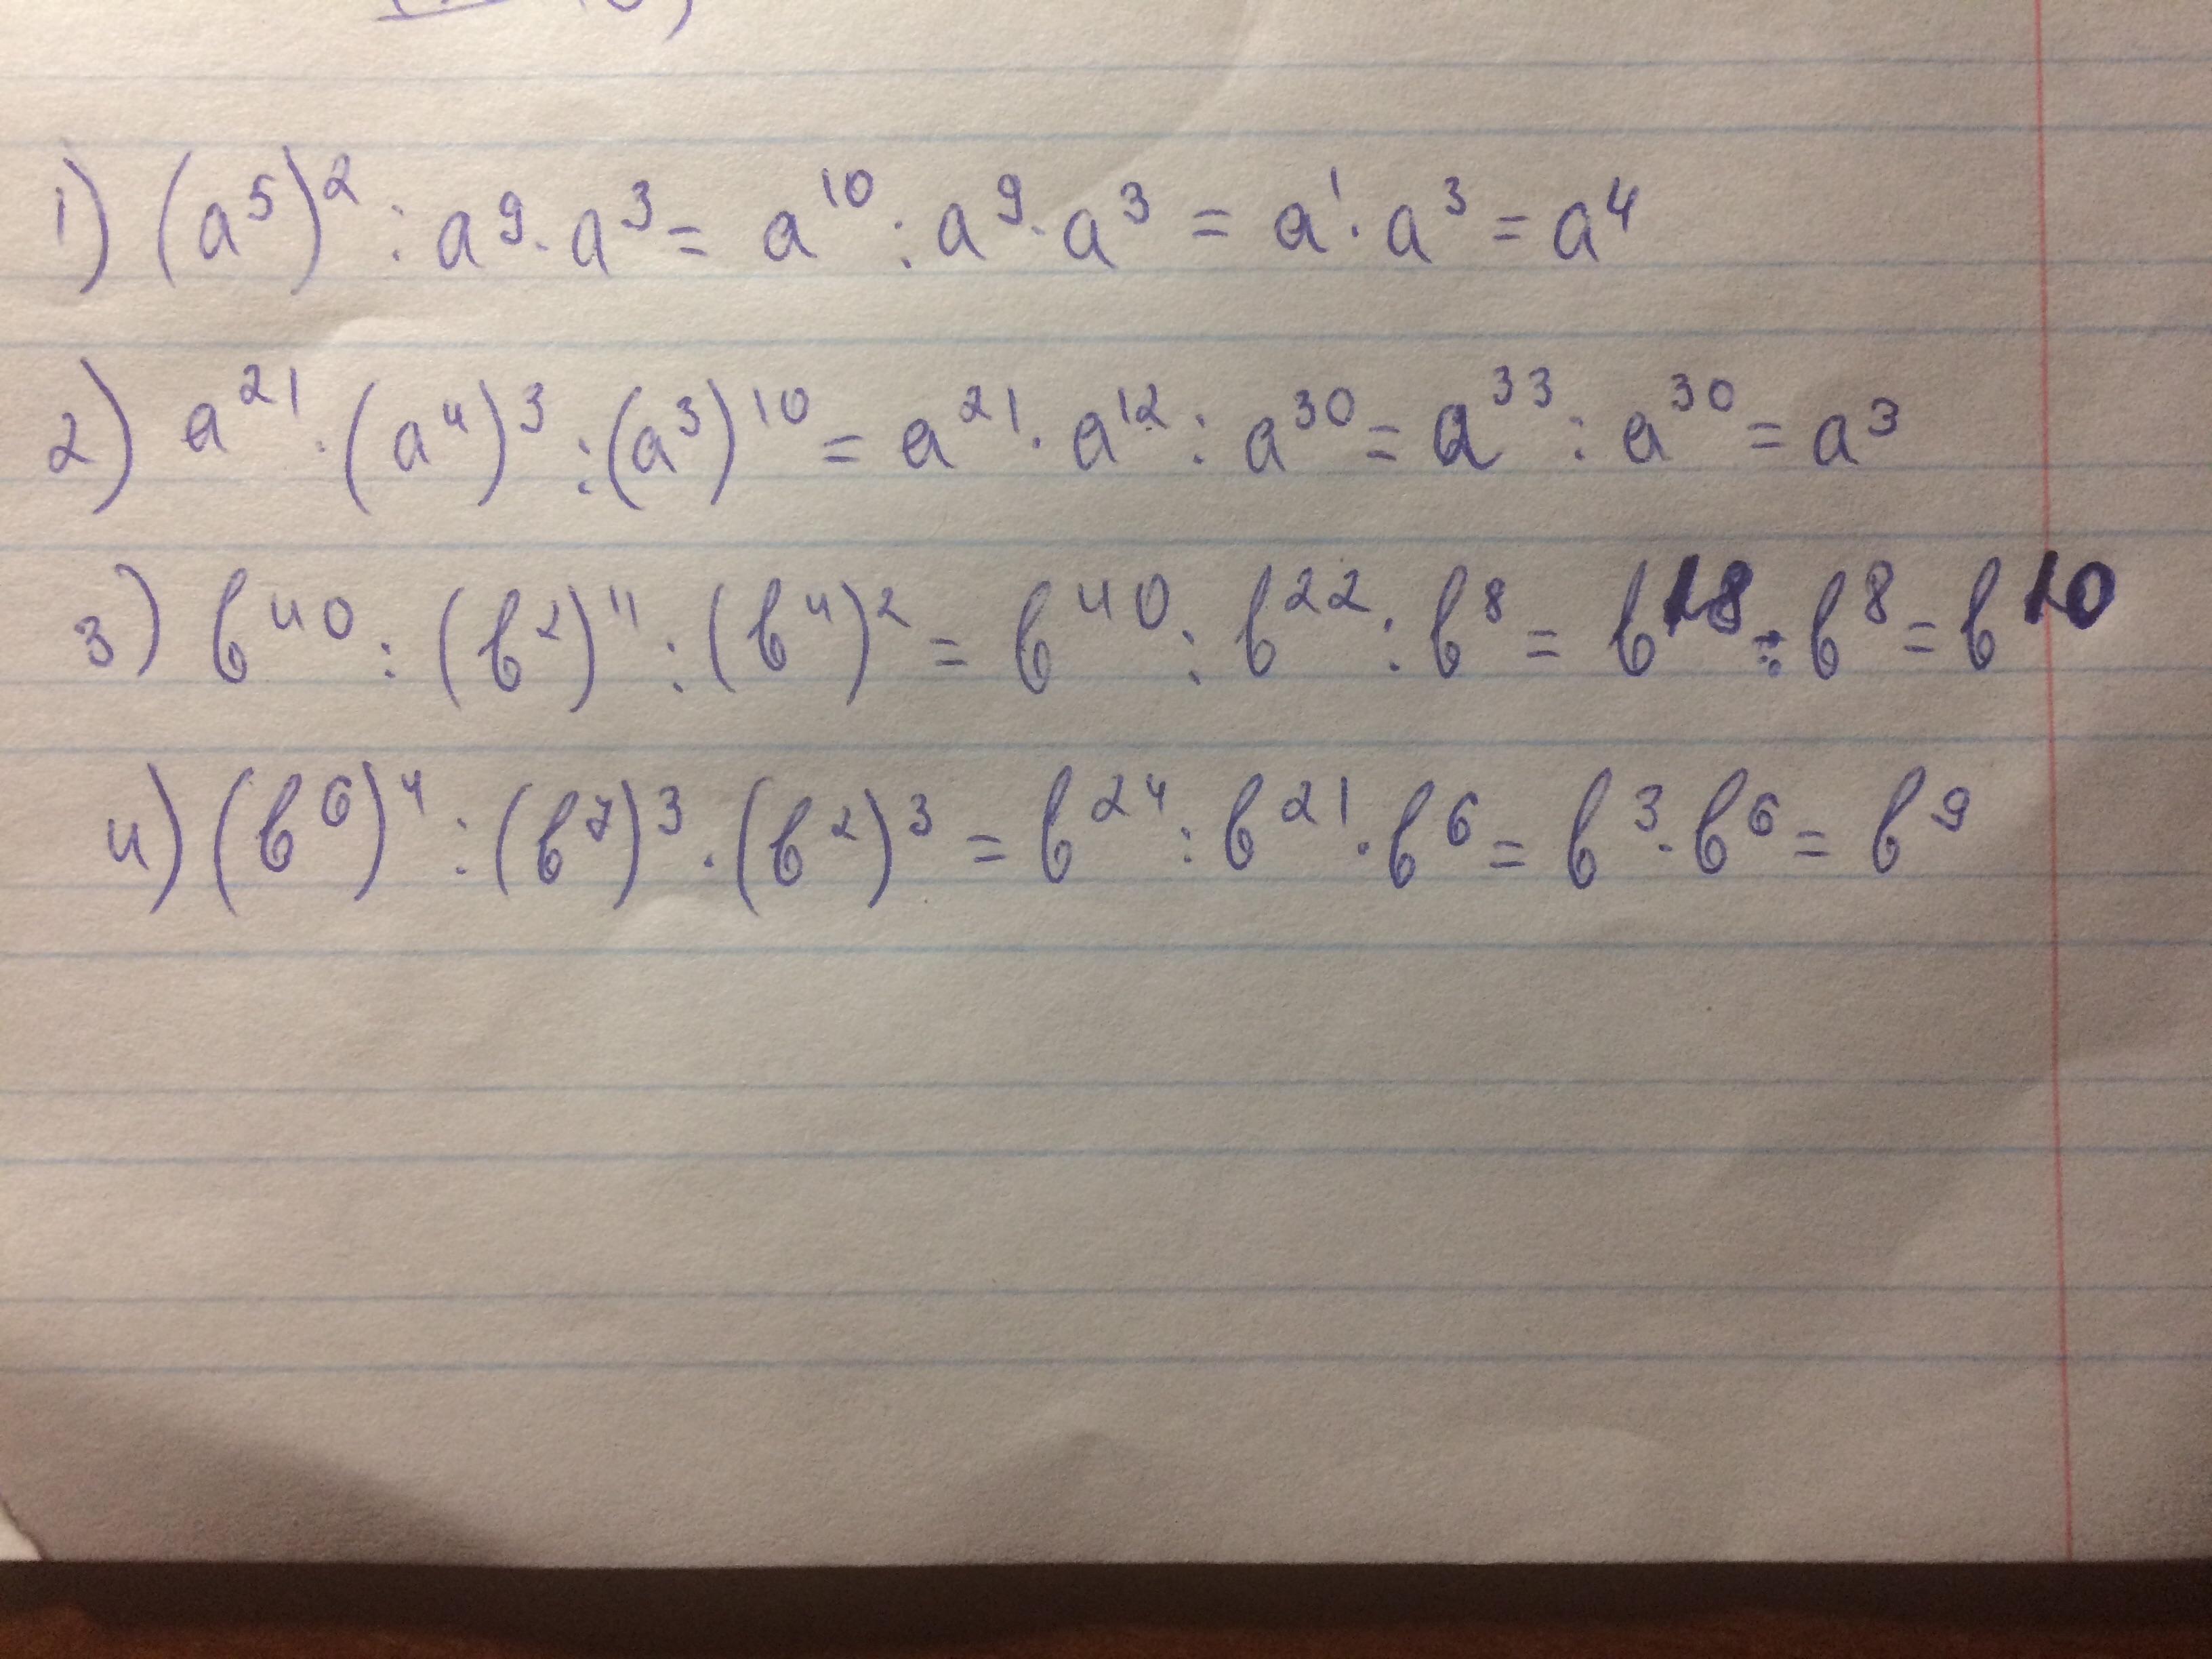 1) (a⁵)² : a⁹ · a³ = a¹⁰ : a⁹ · a³ = a¹ · a³ = a⁴
2) a²¹ · (a⁴)³ : (a³)¹⁰ = a²¹ · a¹² : a³⁰ = a³³ : a³⁰ = a³
3) b⁴⁰ : (b²)¹¹ : (b⁴)² = b⁴⁰ : b²² : b⁸ = b¹⁸ : b⁸ = b¹⁰
4) (b⁶)⁴ : (b⁷)³ · (b²)³ = b²⁴ : b²¹ · b⁶ = b³ · b⁶ = b⁹